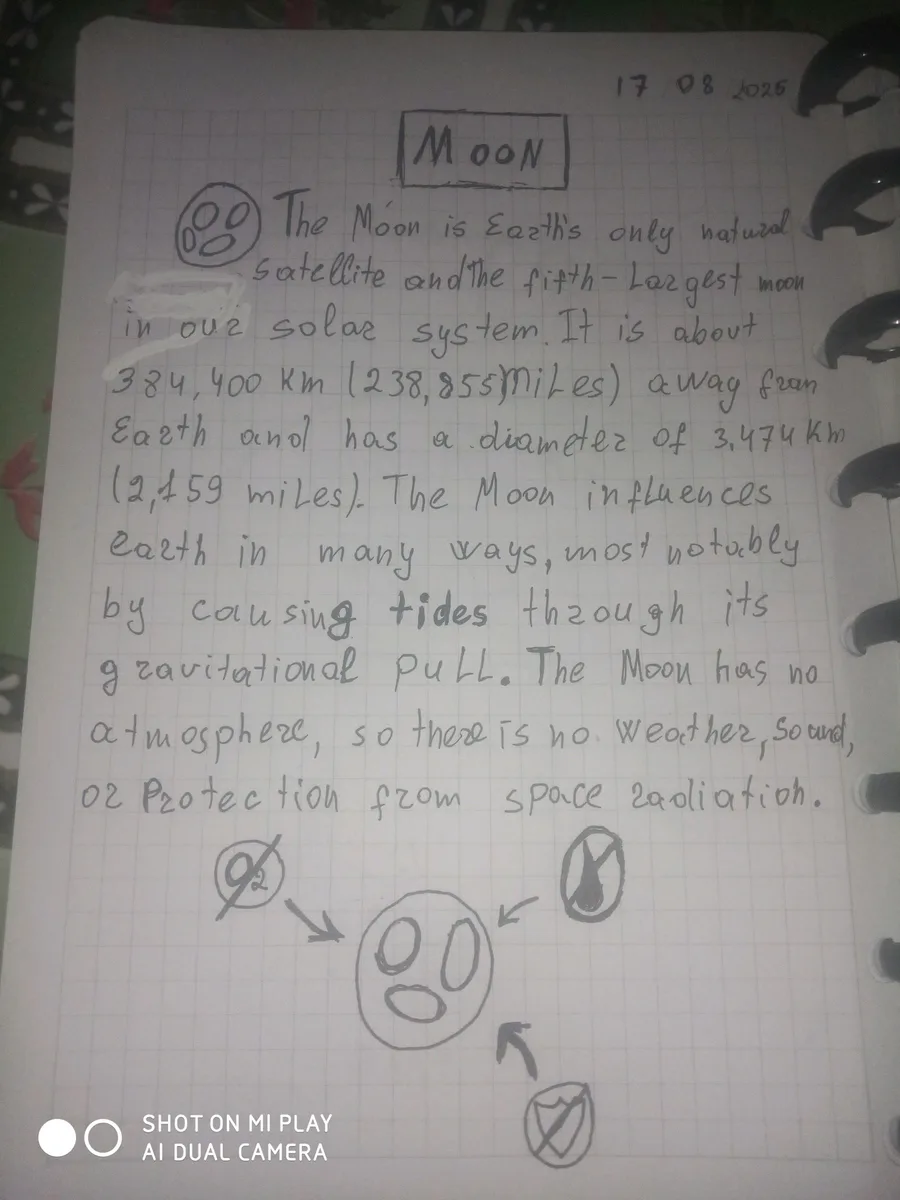 17 08 2025
MOON
The Moon is Earth's only natural
satellite and the fifth-Largest moon
in our solar system. It is about
384,400 Km (238,855 miLes) away from
Earth and has a diameter of 3,474 Km
(2,159 miLes). The Moon influences
earth in many ways, most notably
by causing tides through its
gravitational pULL. The Moon has no
atmosphere, so there is no weather, Sound,
or Protection from space radiation.
O2
SHOT ON MI PLAY
AI DUAL CAMERA